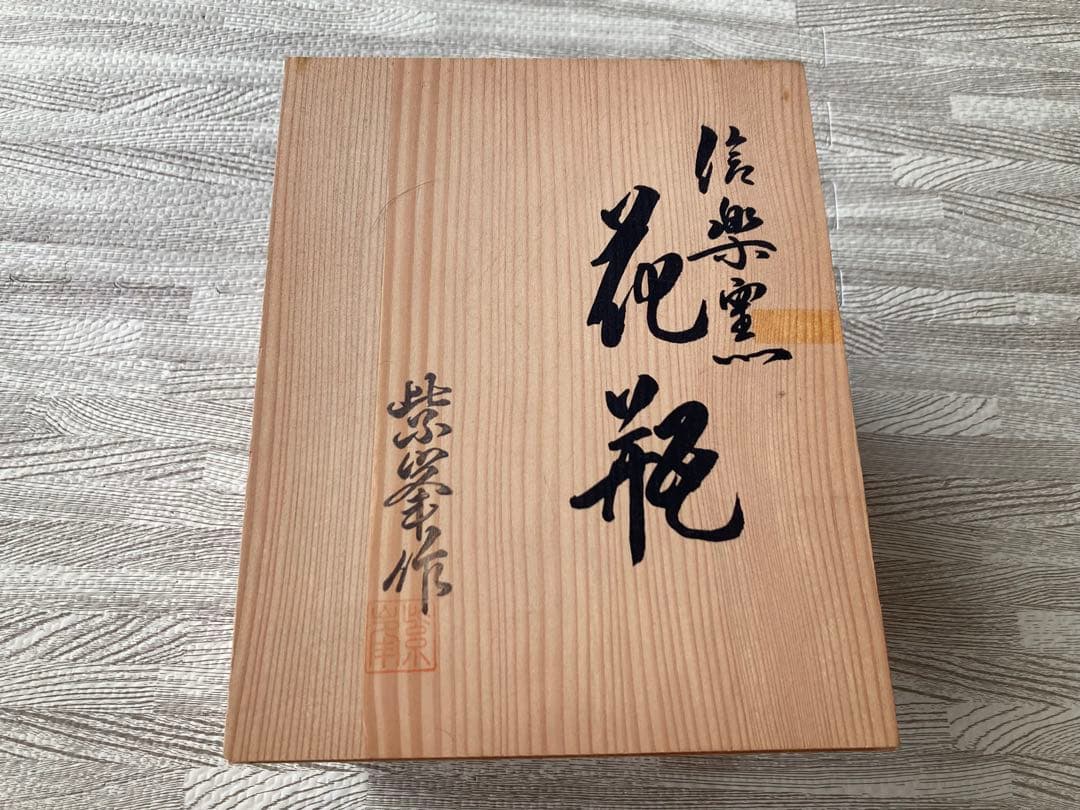 信楽窯
花瓶
紫峯作
紫峯